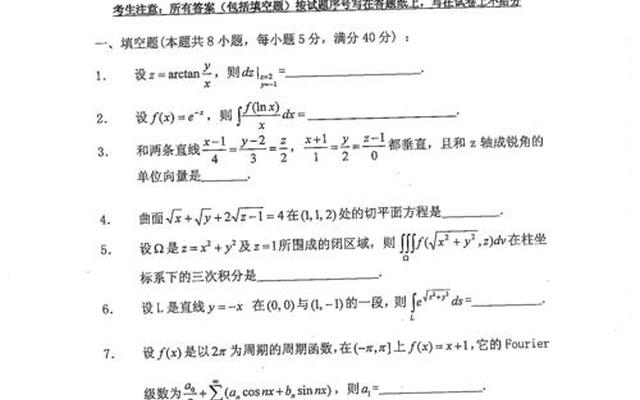 考生注意：所有答案（包括填空题）按试题序号写在答题纸上，写在试卷上不给分
一、填空题(本题共8小题，每小题5分，满分40分)：
1. 设 z = arctan y/x，则 dz|x=2 y=-1 =________.
2. 设 f(x) = e^{-x}，则 ∫ f(ln x)/x dx = ________.
3. 和两条直线 (x-1)/4 = (y-2)/3 = z/2，(x+1)/1 = y/2 = (z-1)/0 都垂直，且和 z 轴成锐角的
单位向量是________.
4. 曲面 √x + √y + 2√(z-1) = 4 在 (1,1,2) 处的切平面方程是________.
5. 设 Ω 是 z = x² + y² 及 z = 1 所围成的闭区域，则 ∭_Ω f(√(x² + y²), z)dv 在柱坐
标系下的三次积分是________.
6. 设 L 是直线 y = -x 在 (0,0) 与 (1,-1) 的一段，则 ∫_L e^{√(x²+y²)} ds = ________.
7. 设 f(x) 是以 2π 为周期的周期函数，在 (-π,π] 上 f(x) = x+1，它的 Fourier
级数为 a₀/2 + ∑(aₙ cos nx + bₙ sin nx)，则 a₁ = ________.